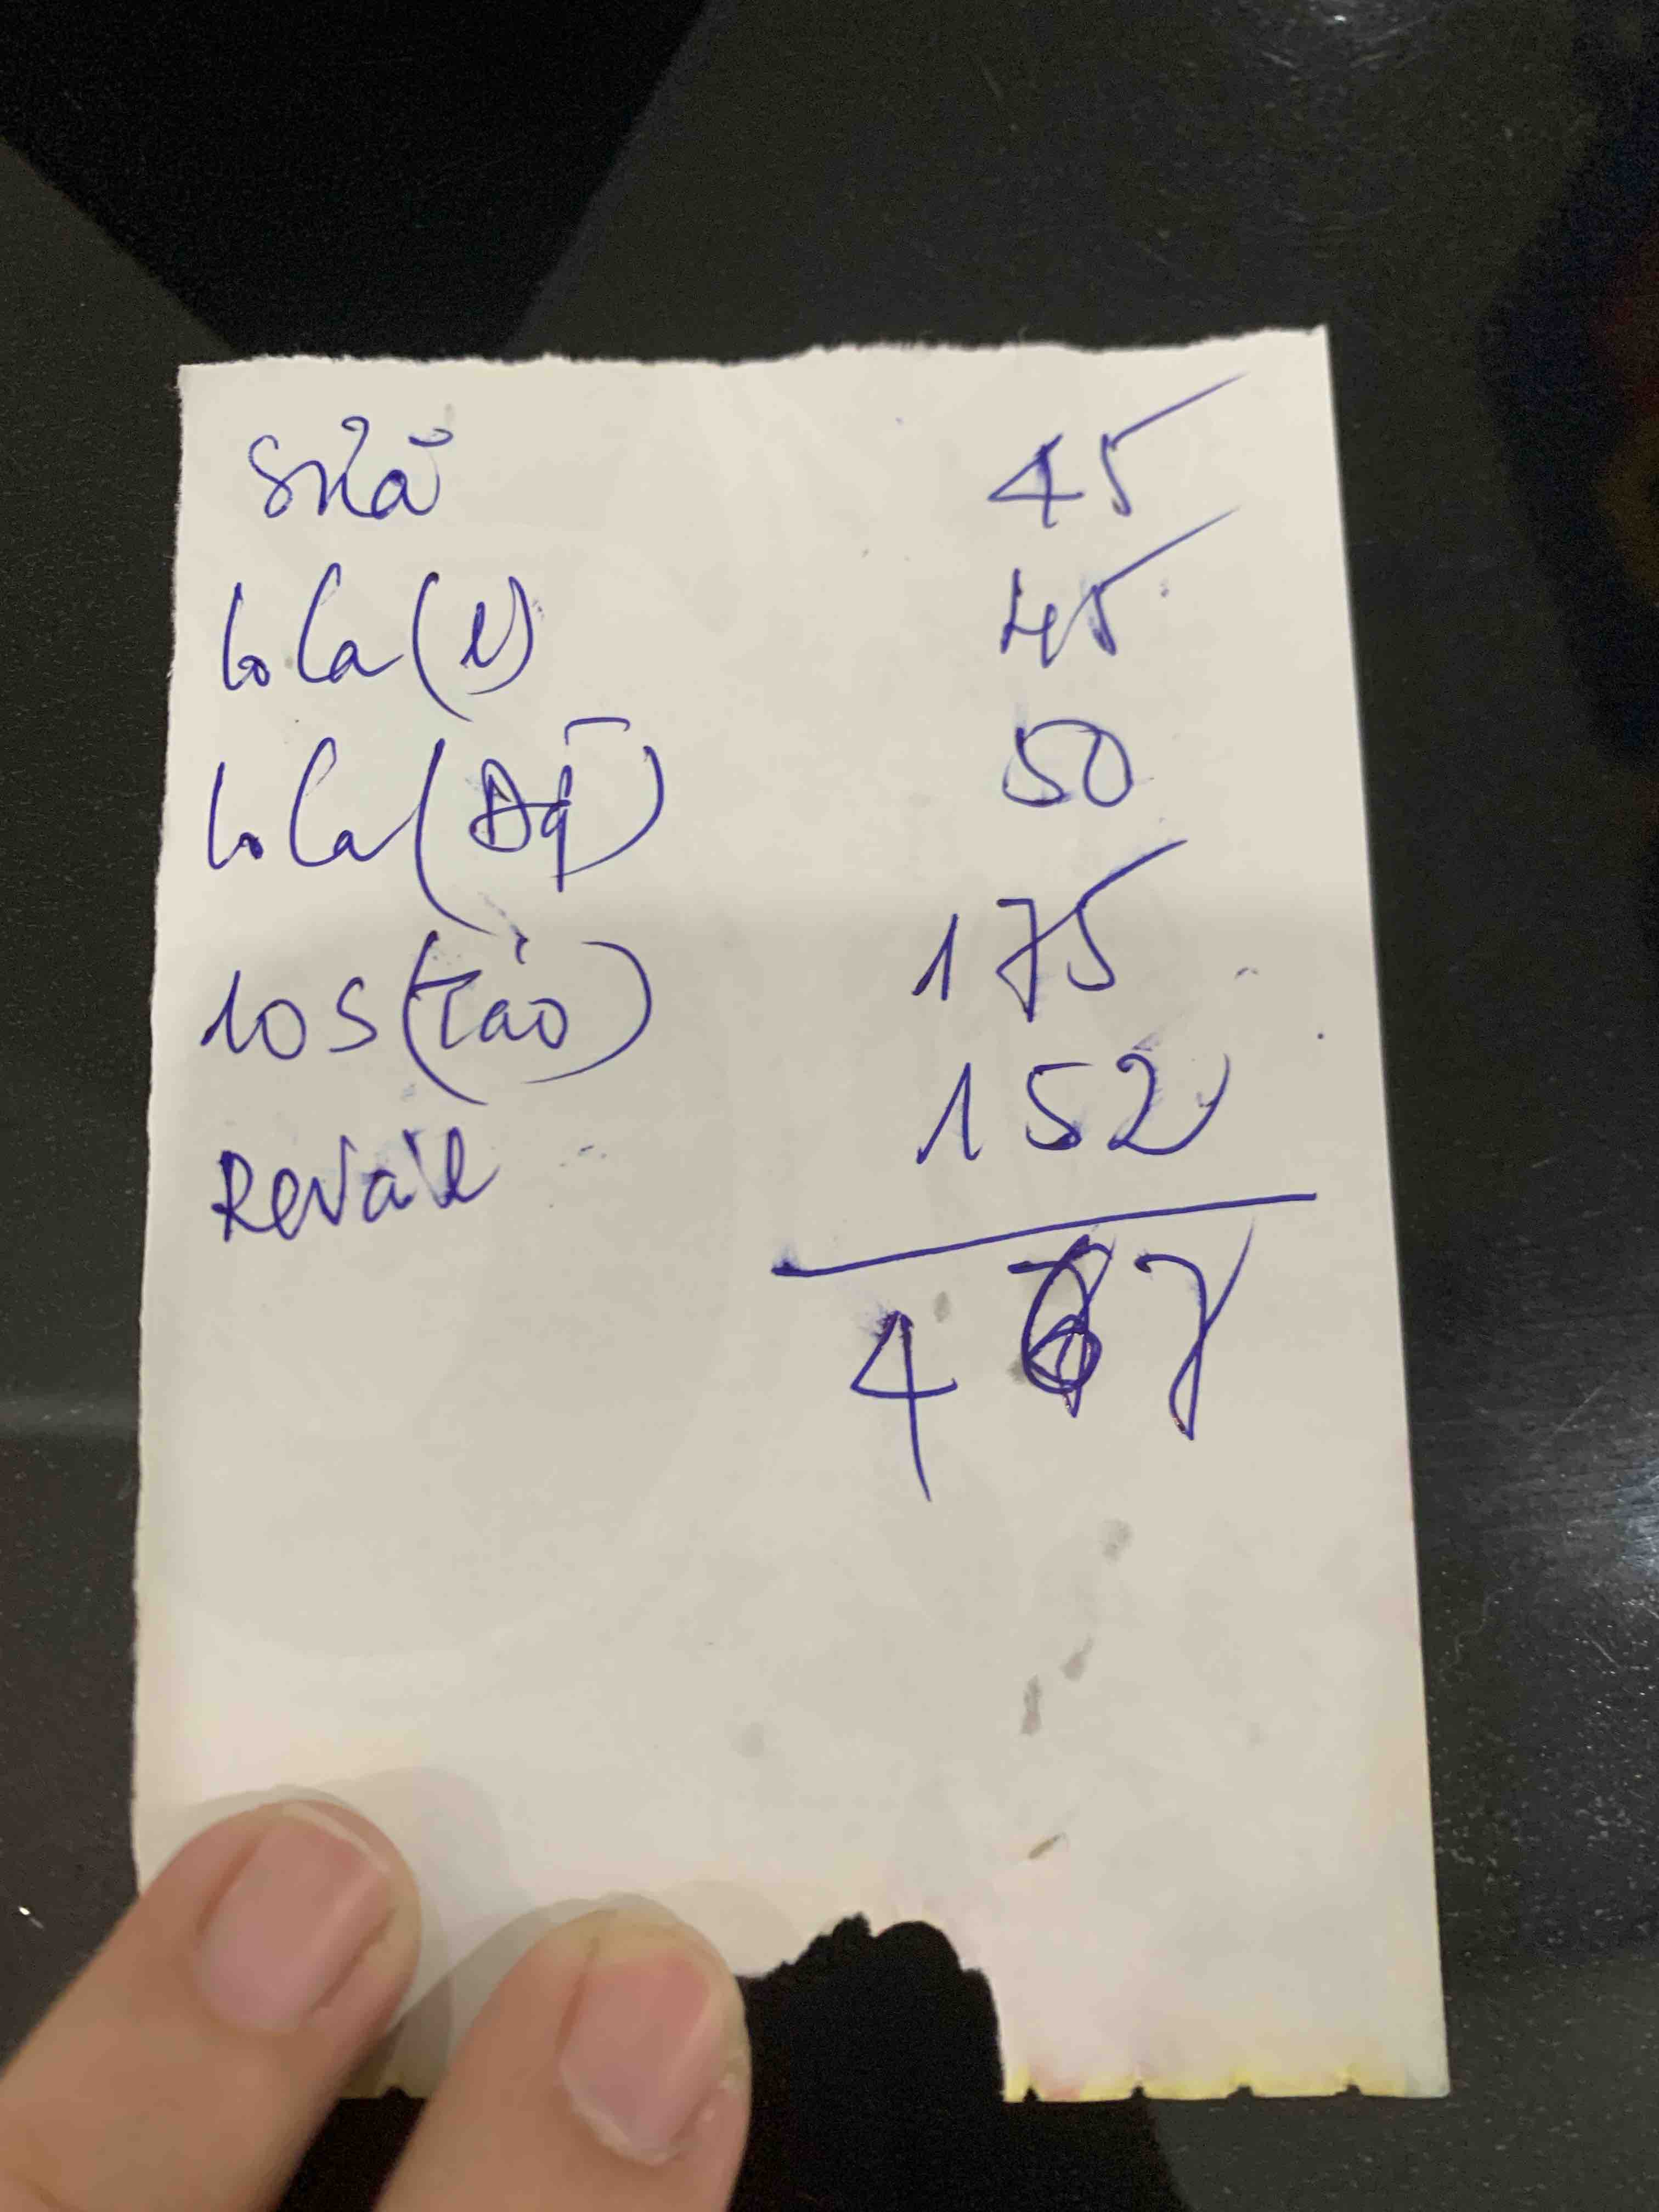 Sữa 45
lo Ca (N) 45
lo Ca (Dq) 50
10 S (Táo) 175
Revaik 152
467